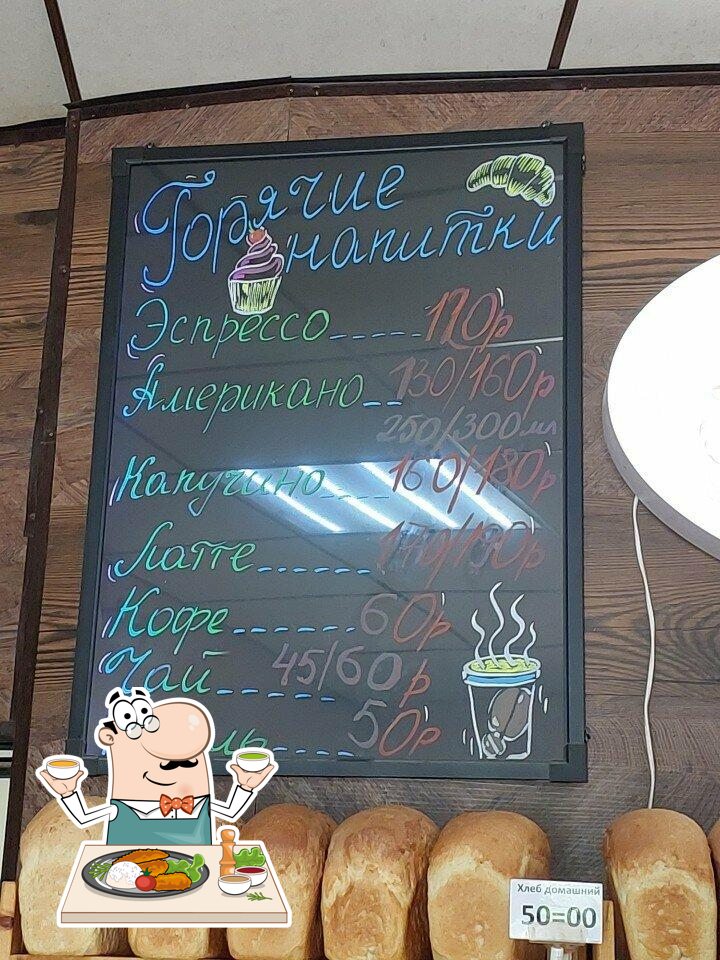 Горячие
напитки
Эспрессо 120р
Американо 130/160р
250/300мл
Капучино 160/180р
Латте 170/190р
Кофе 60р
Чай 45/60р
50р
Хлеб домашний
50=00